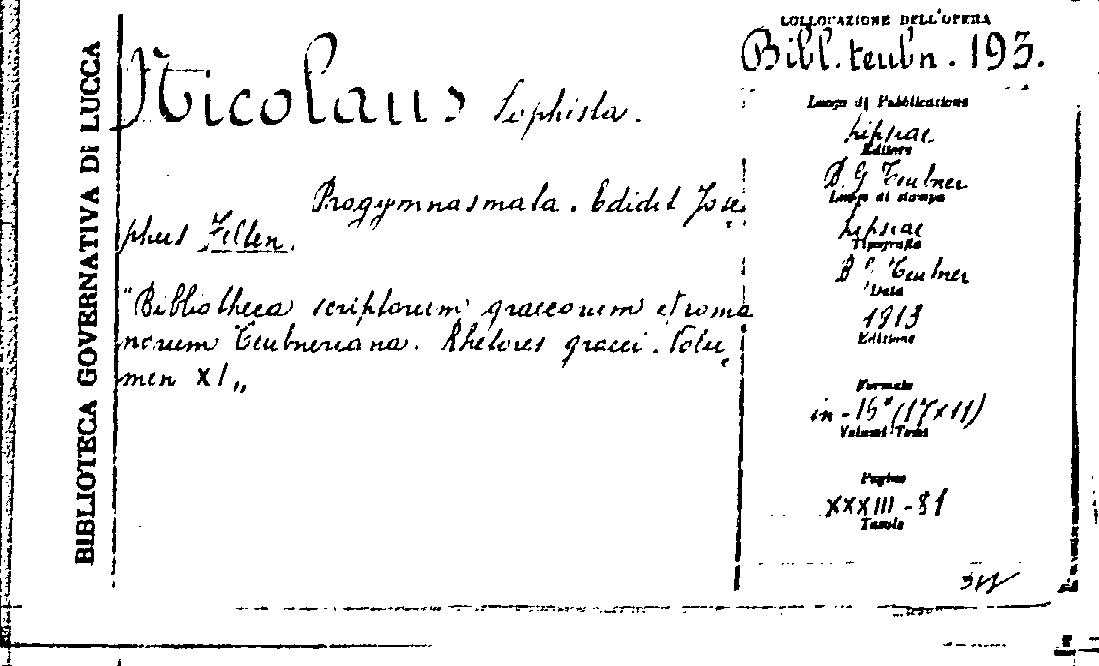 BIBLIOTECA GOVERNATIVA DI LUCCA
COLLOCAZIONE DELL'OPERA
Bibl. teubn. 193.
Nicolaus Sophista.
Progymnasmata. Edidit Jose
phus Felten.
"Bibliotheca scriptorum graecorum et roma
norum Teubneriana. Rhetores graeci. Volu
men XI„
Luogo di Pubblicazione
Lipsiae
Editore
B. G Teubner
Luogo di stampa
Lipsiae
Tipografia
B G Teubner
Data
1913
Edizione
Formato
in-16° (17x11)
Volumi-Tomi
Pagine
XXXIII-81
Tavole